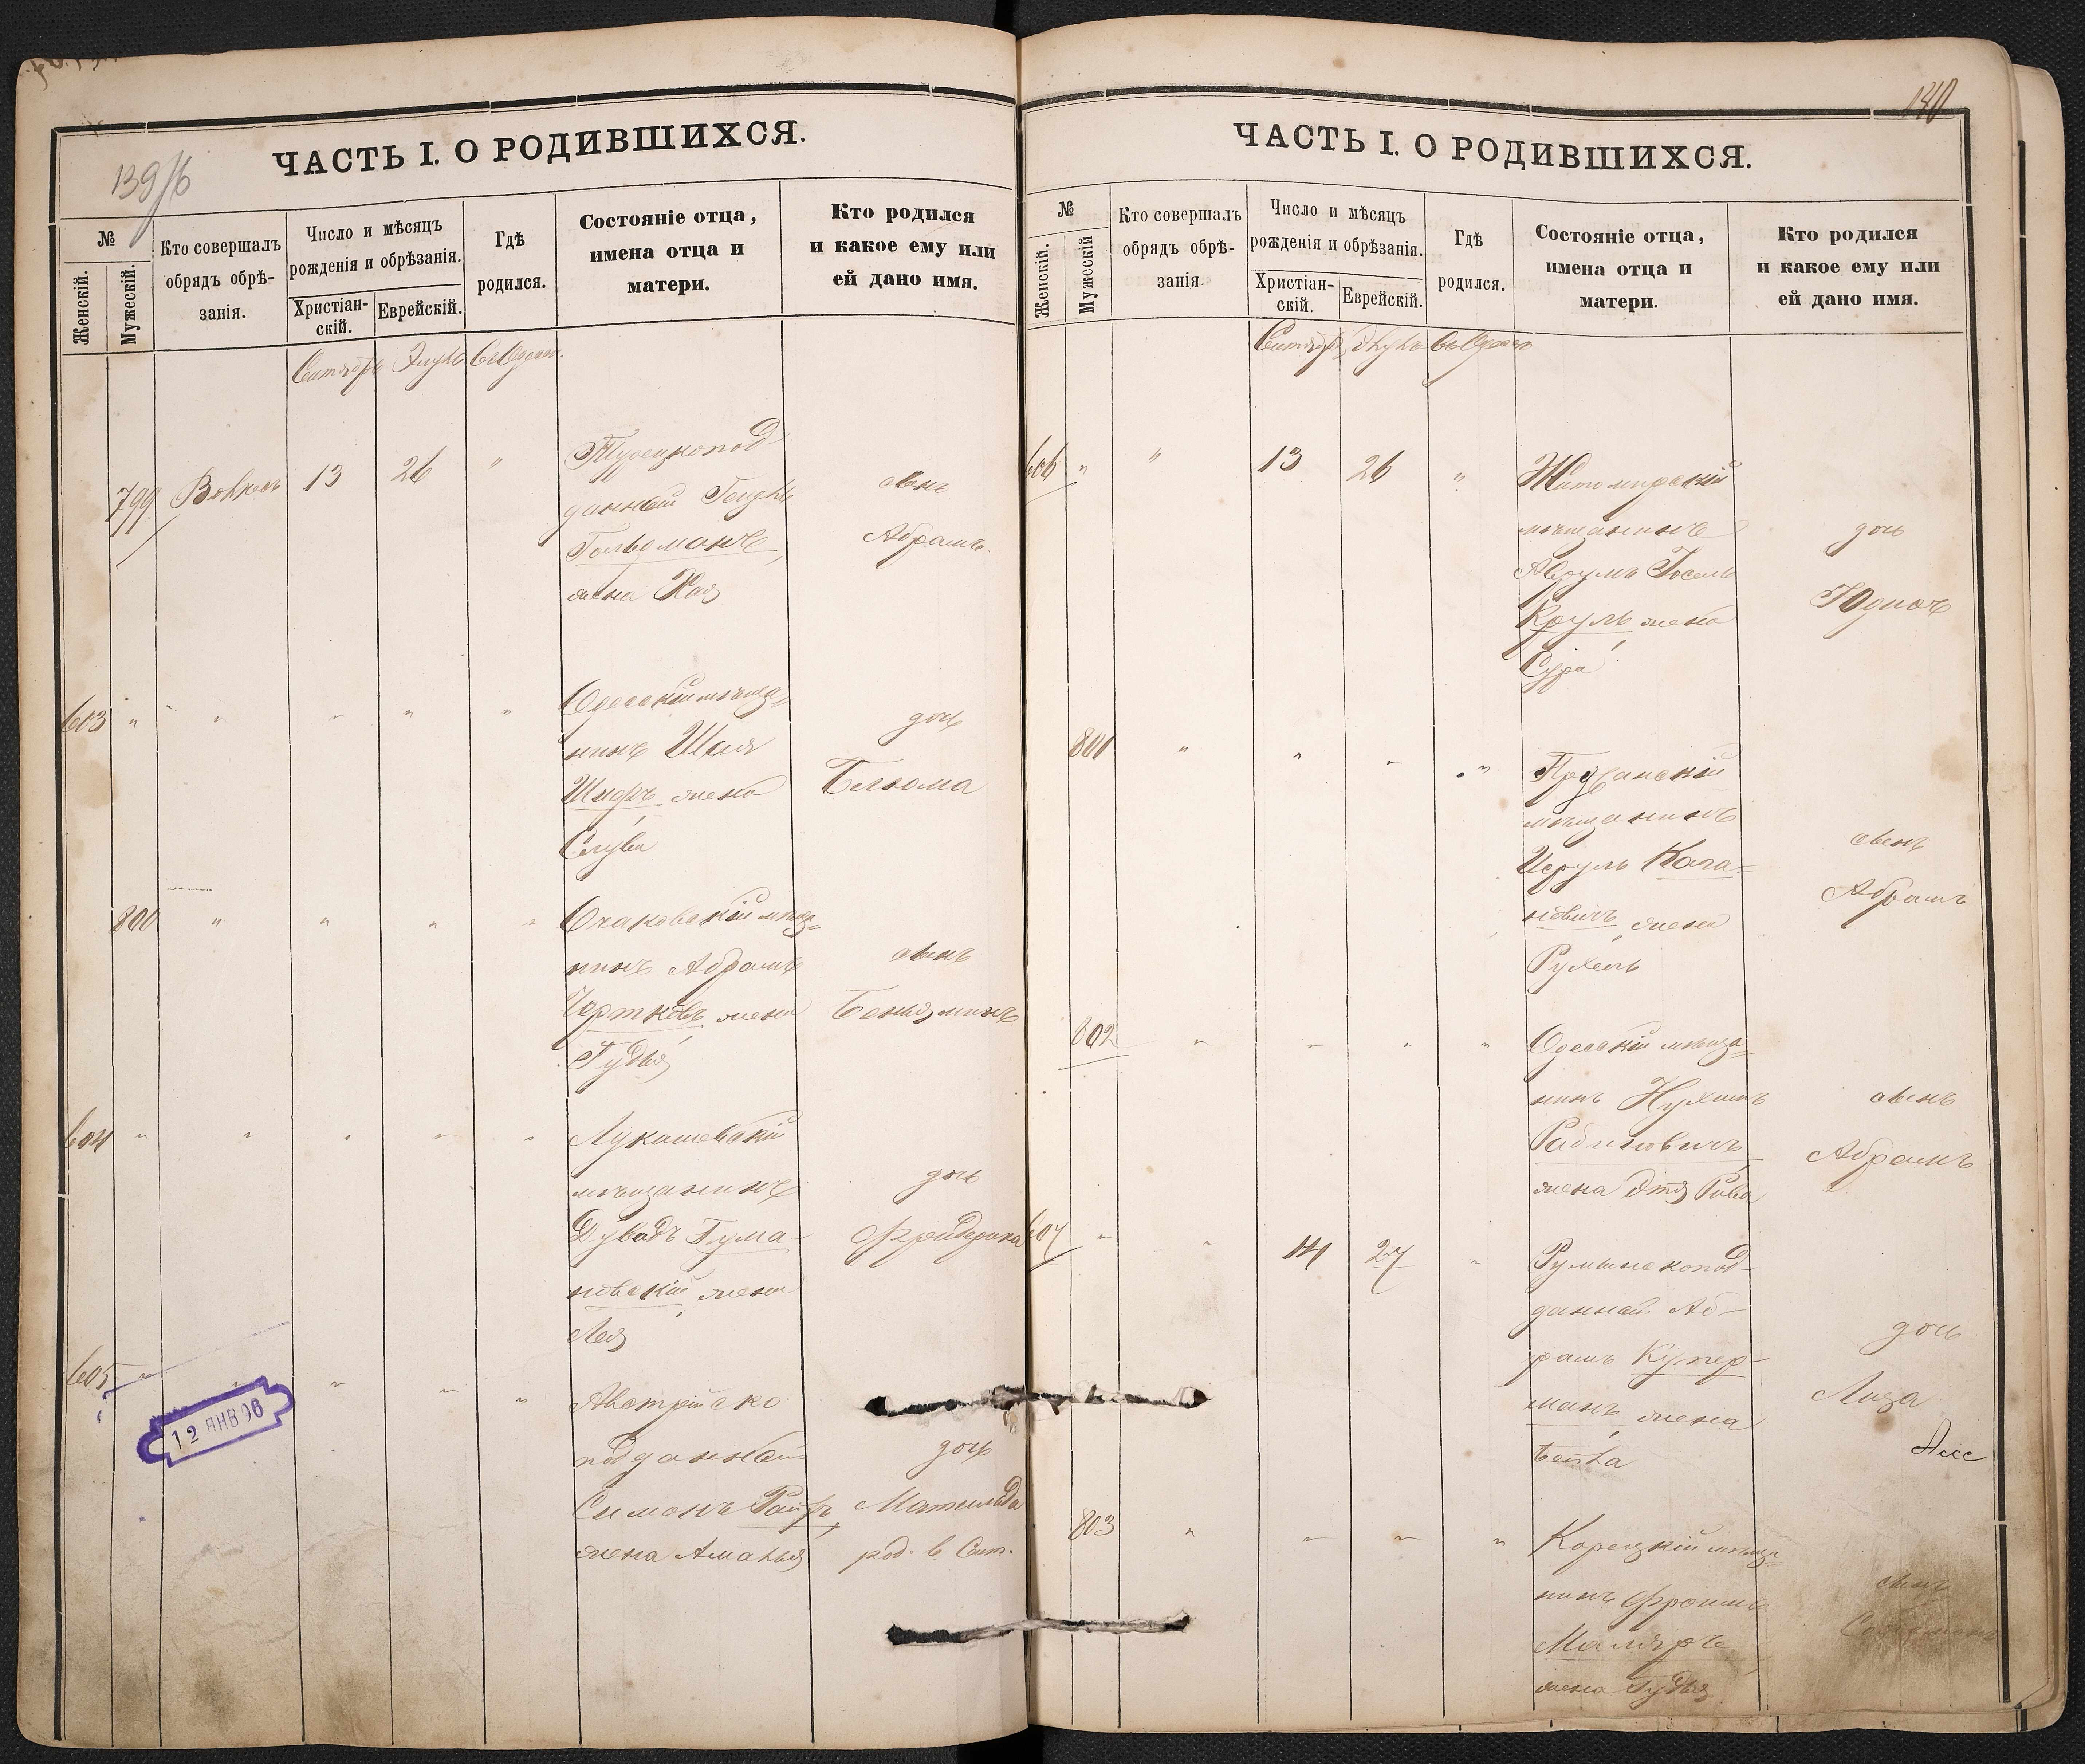 139/б
ЧАСТЬ I. О РОДИВШИХСЯ.
№
Женскій.
Мужескій.
Кто совершалъ
обрядъ обрѣ-
занія.
Число и мѣсяцъ
рожденія и обрѣзанія.
Христіан-
скій.
Еврейскій.
Гдѣ
родился.
Состояніе отца,
имена отца и
матери.
Кто родился
и какое ему или
ей дано имя.
Сентябрь
799
13
26
"
Турецкопод
данный
жена Хая
сынъ
Абрамъ.
603
" " " " "
Одесскій мѣща-
нинъ Шая
Шифъ жена
дочь
Блюма
800
" " " "
Очаковскій мѣща-
нинъ Абрамъ
Чертковъ жена
Гудья
сынъ
Беньяминъ
604
" " " " "
мѣщанинъ
Дувадъ Гума-
новскій, жена
Лея
дочь
605
" " " " "
Австрійско
подданный
Симонъ
жена
дочь
Матильда
род. в Сент.
12 ЯНВ 96
140
ЧАСТЬ I. О РОДИВШИХСЯ.
№
Женскій.
Мужескій
Кто совершалъ
обрядъ обрѣ-
занія.
Число и мѣсяцъ
рожденія и обрѣзанія.
Христіан-
скій.
Еврейскій.
Гдѣ
родился.
Состояніе отца,
имена отца и
матери.
Кто родился
и какое ему или
ей дано имя.
Сентябрь
606
" "
13
26
"
Житомирскій
мѣщанинъ
Аврумъ Іосель
Круль жена
Сура
дочь
801
" " " "
мѣщанинъ
Исруль Кага-
новичъ, жена
Рухель
сынъ
Абрамъ
802
" " " "
Одесскій мѣща-
нинъ Нухимъ
Рабиновичъ,
жена Этя Рива
сынъ
Абрамъ
607
" "
14
27
"
Румынскопод-
данный Аб-
рамъ Купер-
манъ, жена
Бейла
дочь
Лиза
803
" " " "
Корецкій мѣща-
нинъ Фроимъ
Маляръ
жена Гудья
сынъ